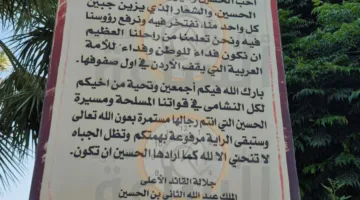 احب الحسين
الحسين، والشعار الذي يزين جبين
كل واحد منا نفتخر فيه ونرفع رؤوسنا
فيه ونحن تعلمنا من راحلنا العظيم
ان نكون فداء للوطن وفداء للأمة
العربية التي يقف الأردن في اول صفوفها.
بارك الله فيكم أجمعين وتحية من اخيكم
لكل النشامى في قواتنا المسلحة ومسيرة
الحسين التي انتم رجالها مستمرة بعون الله تعالى
وستبقى الراية مرفوعة بهمتكم وتظل الجباه
لا تنحني الا لله كما أرادها الحسين ان تكون.
جلالة القائد الأعلى
الملك عبد الله الثاني بن الحسين